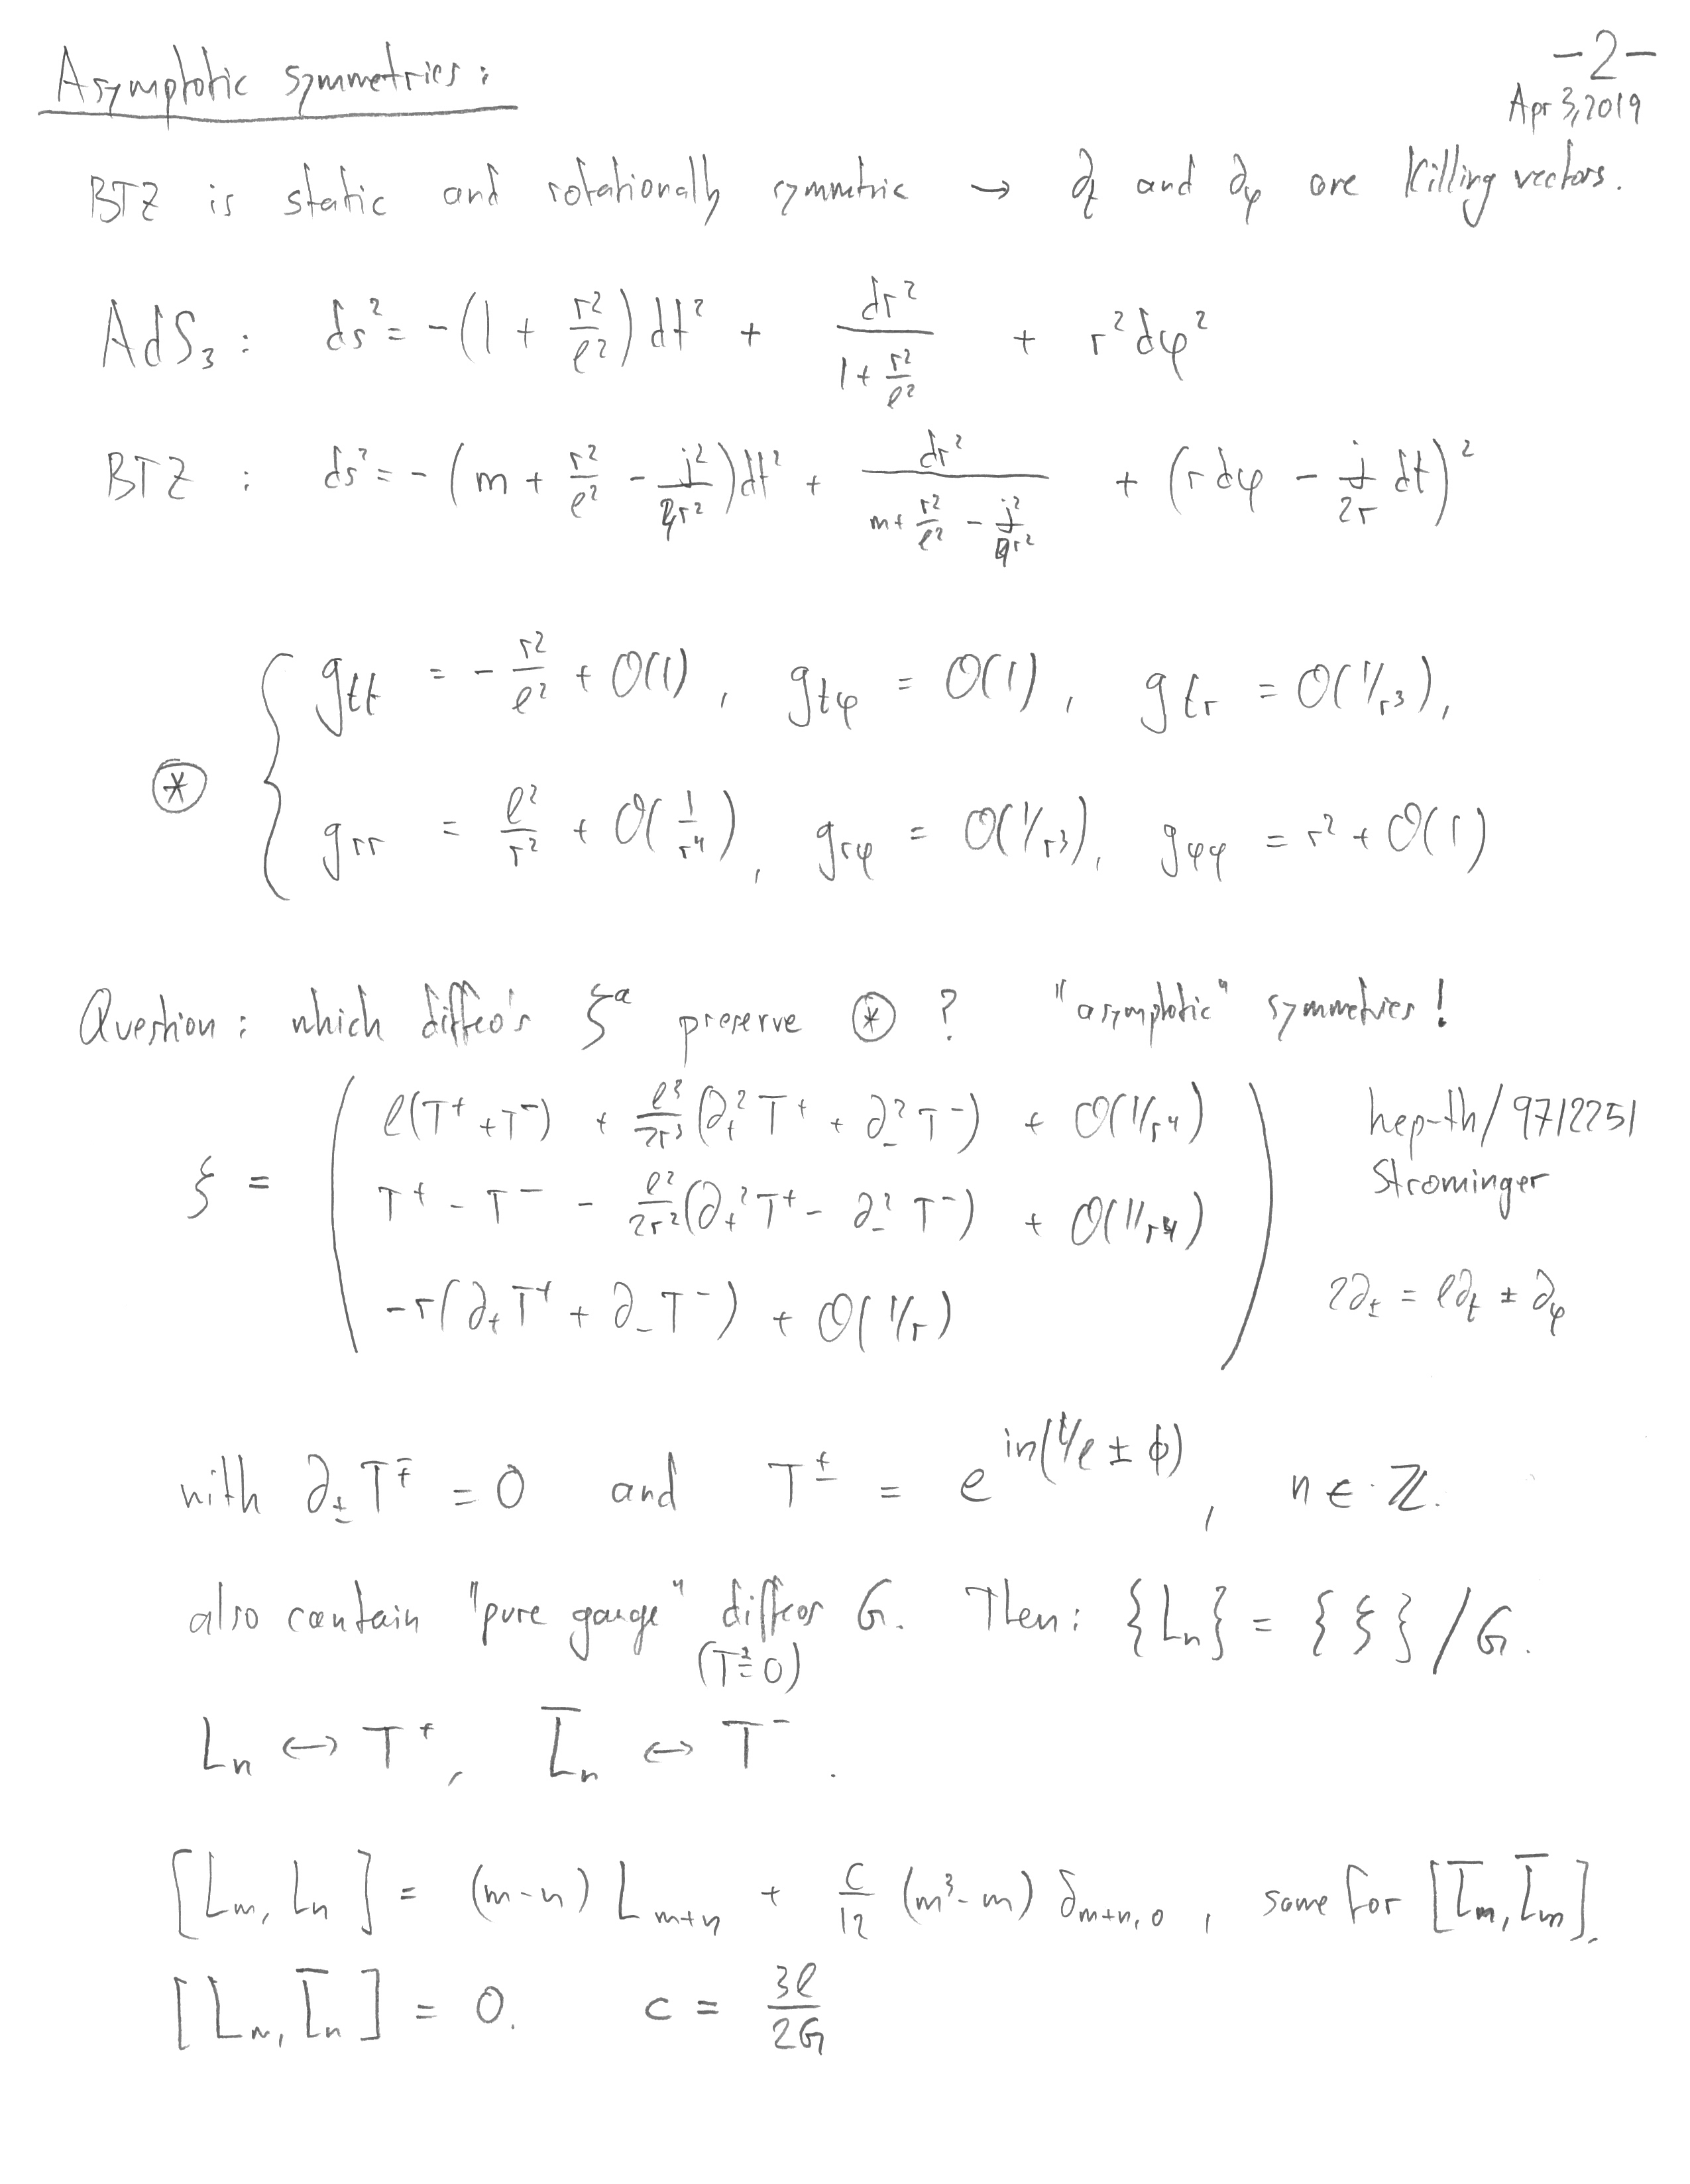 Asymptotic symmetries:
-2-
Apr 3, 2019
BTZ is static and rotationally symmetric → ∂_t and ∂_φ are Killing vectors.
AdS₃: ds² = -(1 + r²/ℓ²) dt² + dr²/(1 + r²/ℓ²) + r² dφ²
BTZ : ds² = -(m + r²/ℓ² - j²/r²) dt² + dr²/(m + r²/ℓ² - j²/r²) + (r dφ - j/2r dt)²
g_tt = - r²/ℓ² + O(1), g_tφ = O(1), g_tr = O(1/r³),
⊛ {
g_rr = ℓ²/r² + O(1/r⁴), g_rφ = O(1/r³), g_φφ = r² + O(1)
Question: which diffeo's ξ^a preserve ⊛ ? "asymptotic" symmetries!
ℓ(T⁺ + T⁻) + ℓ³/2r³ (∂₊² T⁺ + ∂₋² T⁻) + O(1/r⁴)
ξ = ( T⁺ - T⁻ - ℓ²/2r² (∂₊² T⁺ - ∂₋² T⁻) + O(1/r⁴) )
-r(∂₊T⁺ + ∂₋T⁻) + O(1/r)
hep-th/9712251
Strominger
2∂_± = ℓ∂_t ± ∂_φ
with ∂_± T^∓ = 0 and T^± = e^{in(t/ℓ ± ϕ)}, n ∈ ℤ.
also contain "pure gauge" diffeos G. Then: {L_n} = {ξ}/G.
(T^± = 0)
L_n ↔ T⁺, L̄_n ↔ T⁻.
[L_m, L_n] = (m-n) L_{m+n} + c/12 (m³-m) δ_{m+n,0}, same for [L̄_m, L̄_m].
[L_m, L̄_n] = 0. c = 3ℓ/2G